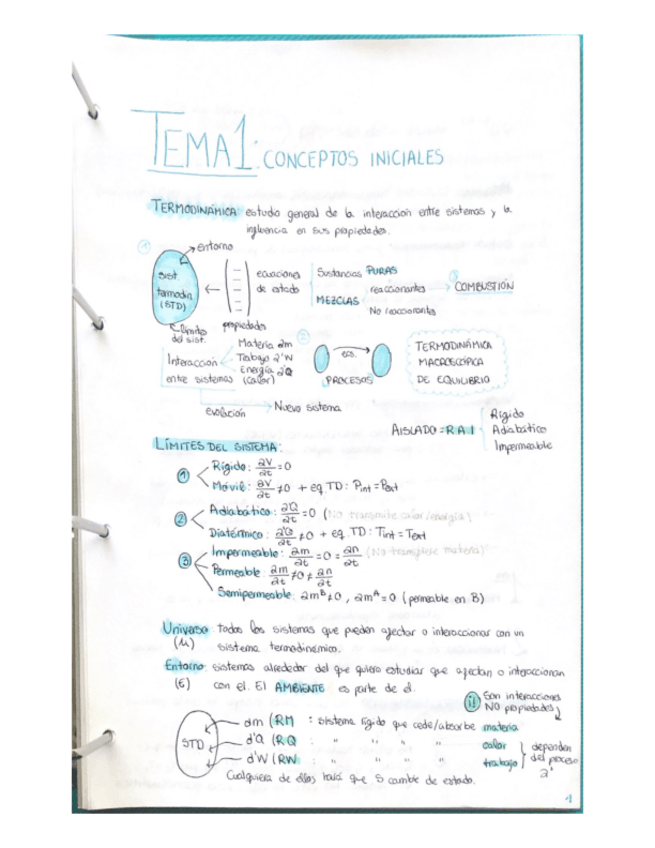 TEMA 1: CONCEPTOS INICIALES
TERMODINÁMICA estudio general de la interaccion entre sistemas y la
influencia en sus propiedades.
① entorno
sist. termodin. (STD)
límite del sist.
propiedades
ecuaciones de estado
Sustancias PURAS
MEZCLAS
reaccionantes → COMBUSTIÓN
No reaccionantes
Interacción entre sistemas
Materia ∂m
Trabajo ∂'W
Energía ∂'Q (calor)
②
PROCESOS
TERMODINÁMICA
MACROSCÓPICA
DE EQUILIBRIO
evolución → Nuevo sistema
AISLADO = R.A.I
Rígido
Adiabático
Impermeable
LÍMITES DEL SISTEMA:
① Rígido: ∂V/∂t = 0
Móvil: ∂V/∂t ≠ 0 + eq TD: Pint = Pext
② Adiabático: ∂'Q/∂t = 0 (NO transmite calor/energía)
Diatérmico: ∂'Q/∂t ≠ 0 + eq. TD: Tint = Text
③ Impermeable: ∂m/∂t = 0 = ∂n/∂t (No transfiere materia)
Permeable: ∂m/∂t ≠ 0 ≠ ∂n/∂t
Semipermeable: ∂mᴮ ≠ 0, ∂mᴬ = 0 (permeable en B)
Universo: todos los sistemas que pueden afectar o interaccionar con un
(μ) sistema termodinámico.
Entorno: sistemas alrededor del que quiero estudiar que afectan o interaccionan
(ε) con el. El AMBIENTE es parte de él.
¡! Son interacciones
NO propiedades
STD
dm (RM : sistema rígido que cede/absorbe materia
d'Q (RQ : " " " " calor
d'W (RW : " " " " trabajo
dependen del proceso
∂'
Cualquiera de ellos hará que S cambie de estado.
1